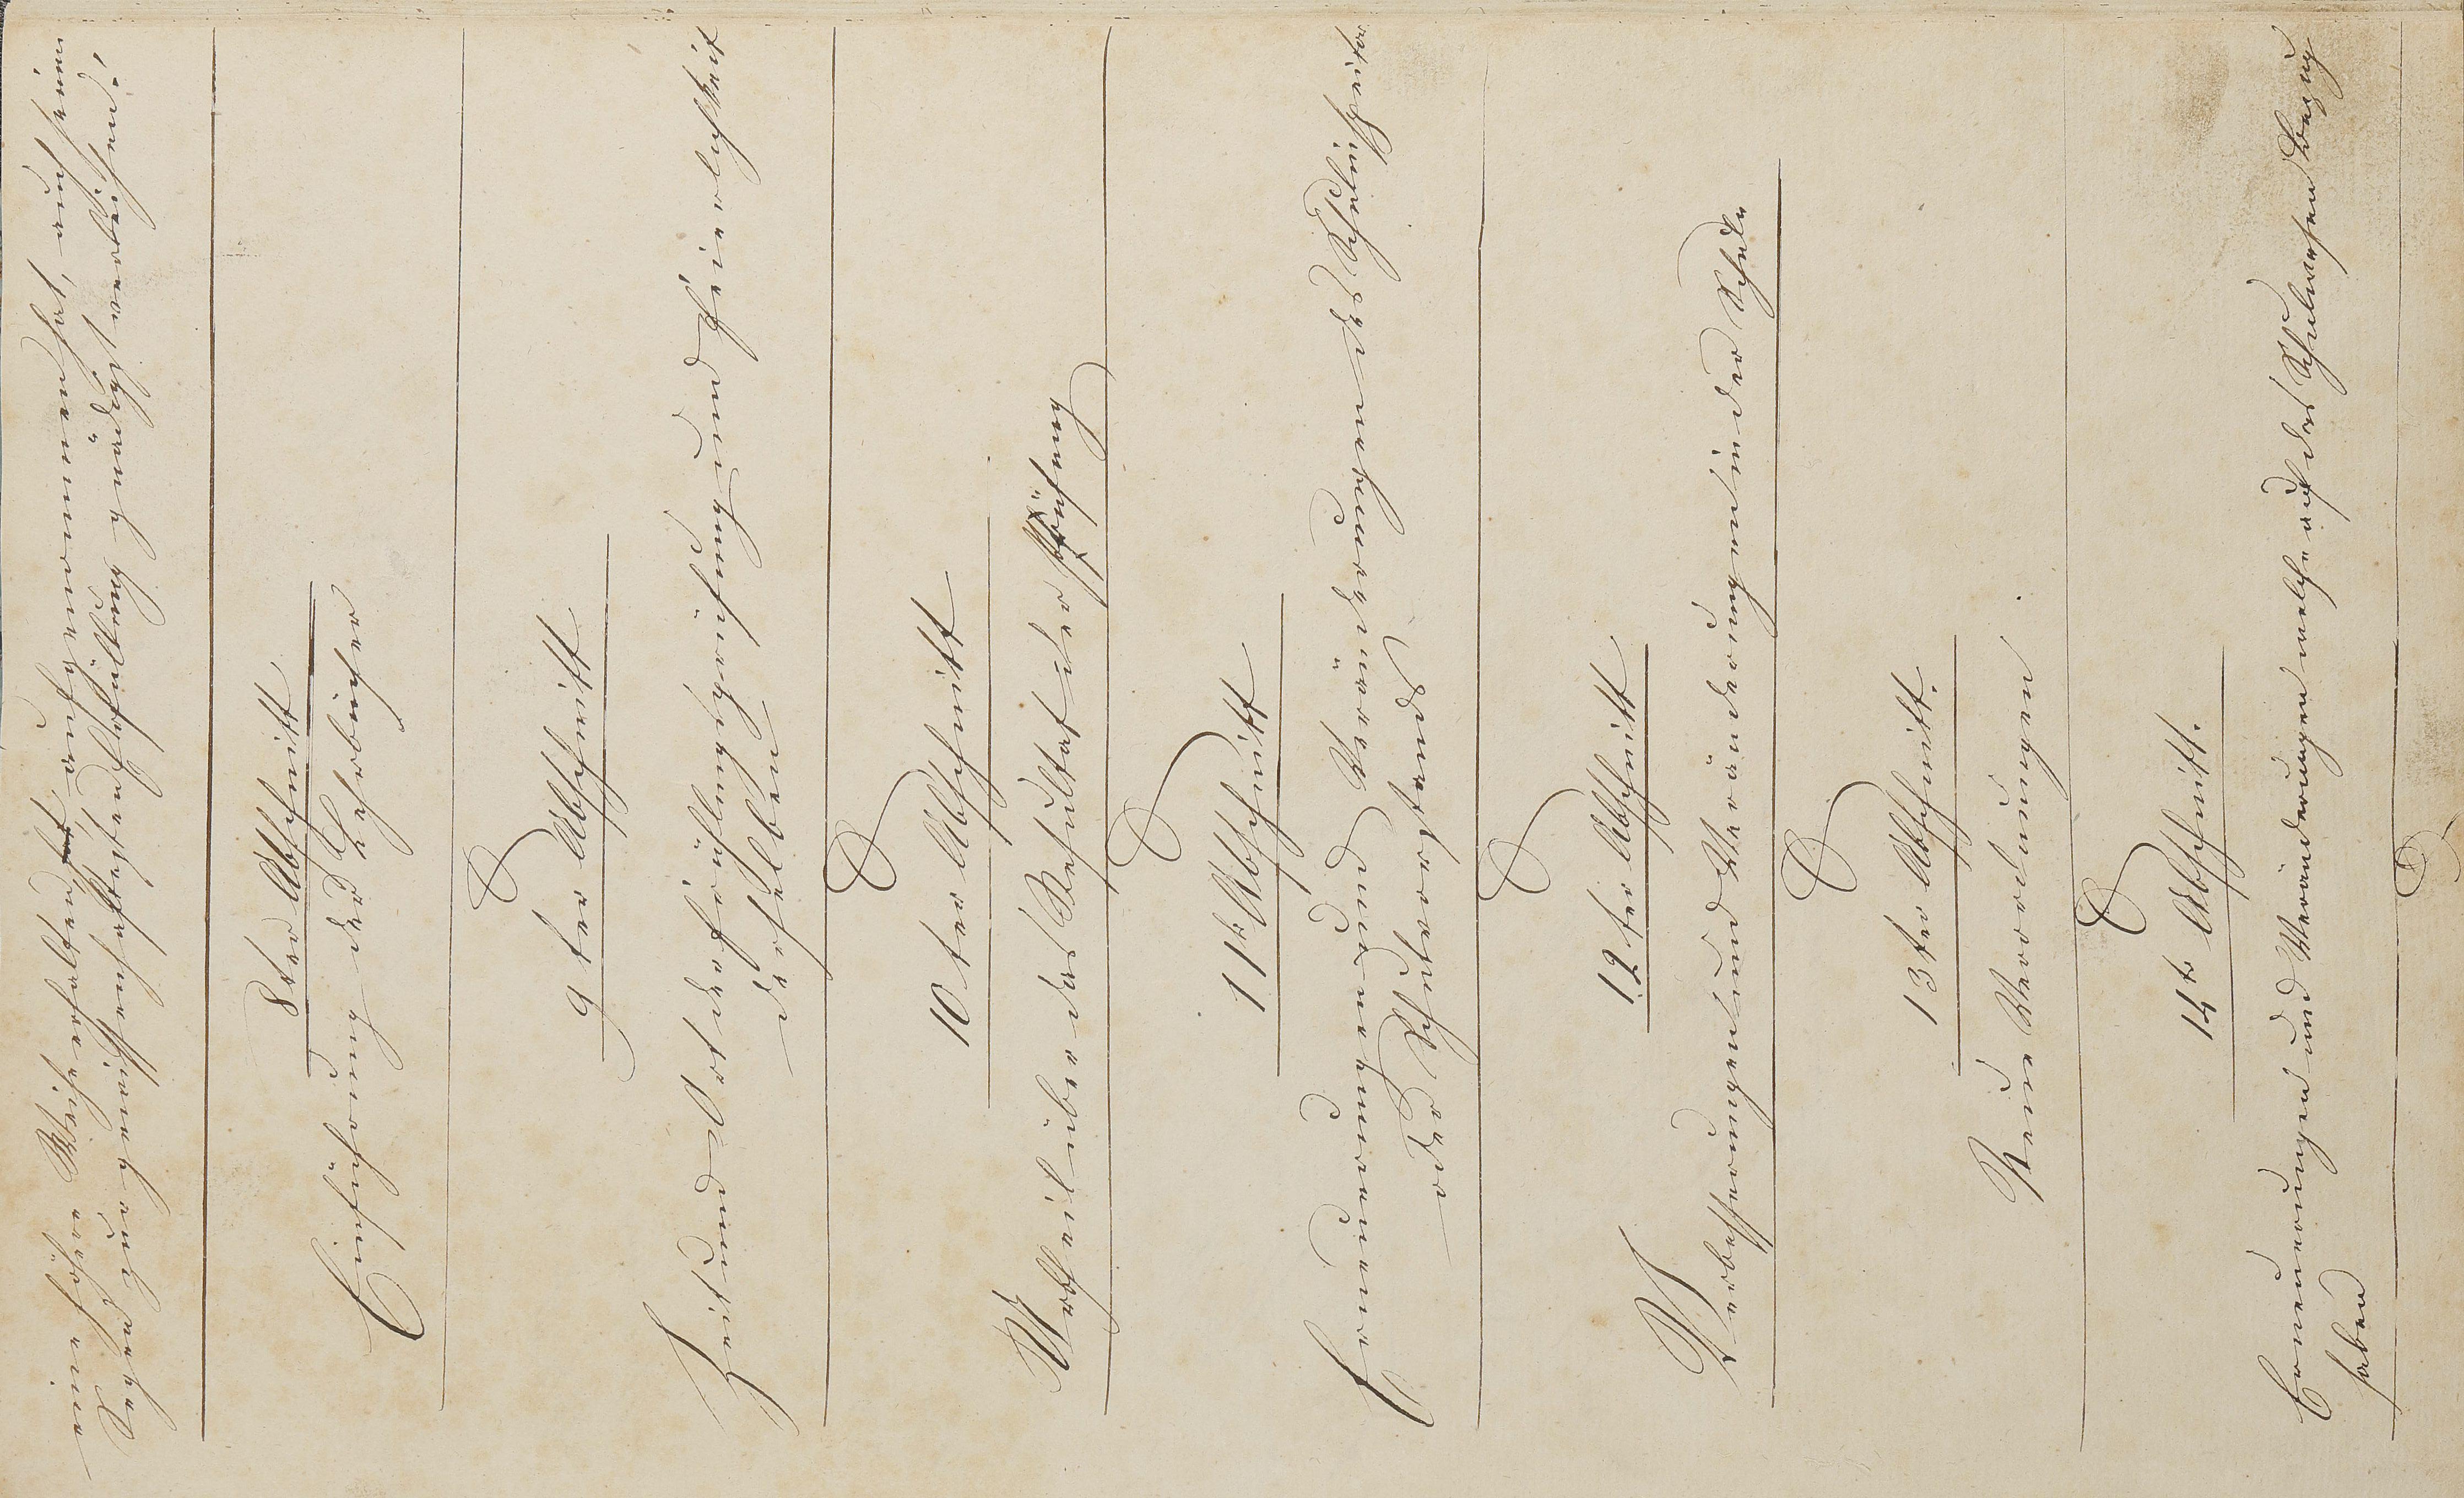 eine höhere Weihe erhalten hat, aufgenommen hat, auch seinen
Segen zur gewissenhaftesten Erfüllung gnädigst verleihen!
8ter Abschnitt
Einführung der Lehrbücher
9ter Abschnitt
Zeit und Ort der frühlingsprüfung und Feierlichkeit
derselben
10ter Abschnitt
Urtheil über das Resultat der Prüfung
11tr Abschnitt
Erneuerungen und Veränderungen des Schulaufseher
oder Schulvorstandes
12ter Abschnitt
Verbesserungen und Veränderungen in der Schule
13ter Abschnitt.
Neue Verordnungen
14tr Abschnitt.
Erneuerungen und Veränderungen welche auf das Schulwesen Bezug
haben